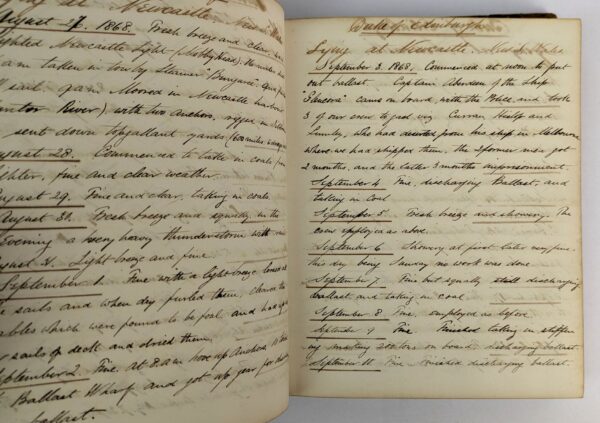 Lying at Newcastle, New S. Wales
August 27. 1868. Fresh breeze and clear
sighted Newcastle Light (Nobbys Head)
am taken in tow by Steamer "Bungaree"
sail. 9 am Moored in Newcastle harbour
(Hunter River), with two Anchors,
sent down topgallant yards
August 28. Commenced to take in coals from
lighter, fine and clear weather.
August 29. Fine and clear, taking in coals.
August 30. Fresh breeze and squally, in the
Evening a heavy thunderstorm with rain
August 31. Light breeze and fine.
September 1. Fine with a light breeze
the sails and when dry furled them, cleared the
cables which were found to be foul, and had
sails of deck and dried them.
September 2. Fine. At 8 am hove up Anchor,
Ballast Wharf and got up gear for
ballast.
Duke of Edinburgh
Lying at Newcastle, New S. Wales
September 3. 1868. Commenced at noon to put
out ballast. Captain Aberdeen of the Ship
came on board, with the Police, and took
3 of our crew to gaol viz Curran Heslip and
Lundy, who had deserted from his ship in Melbourne
where we had shipped them, the 2 former men got
2 months, and the latter 3 months imprisonment.
September 4 Fine, discharging Ballast, and
taking in Coal
September 5. Fresh breeze and showery. The
crew employed as above.
September 6. Showery at first later very fine.
this day being Sunday no work was done
September 7. Fine but squally still discharging
ballast and taking in coal
September 8 Fine, employed as before
September 9 Fine Finished taking in stiffen
ing making tons on board, discharging ballast.
Fine. Finished discharging ballast.